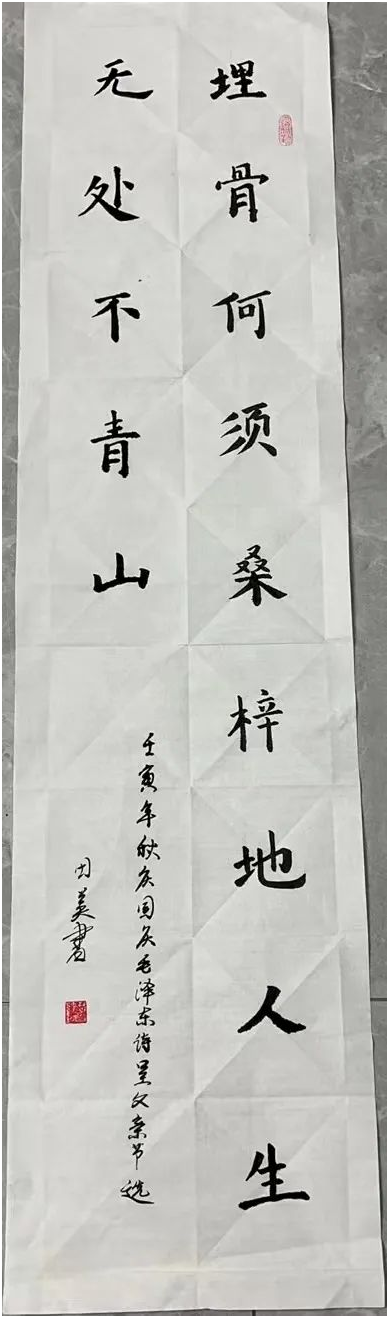 埋骨何须桑梓地人生
无处不青山
壬寅年秋庆国庆毛泽东诗呈父亲节选
因美书